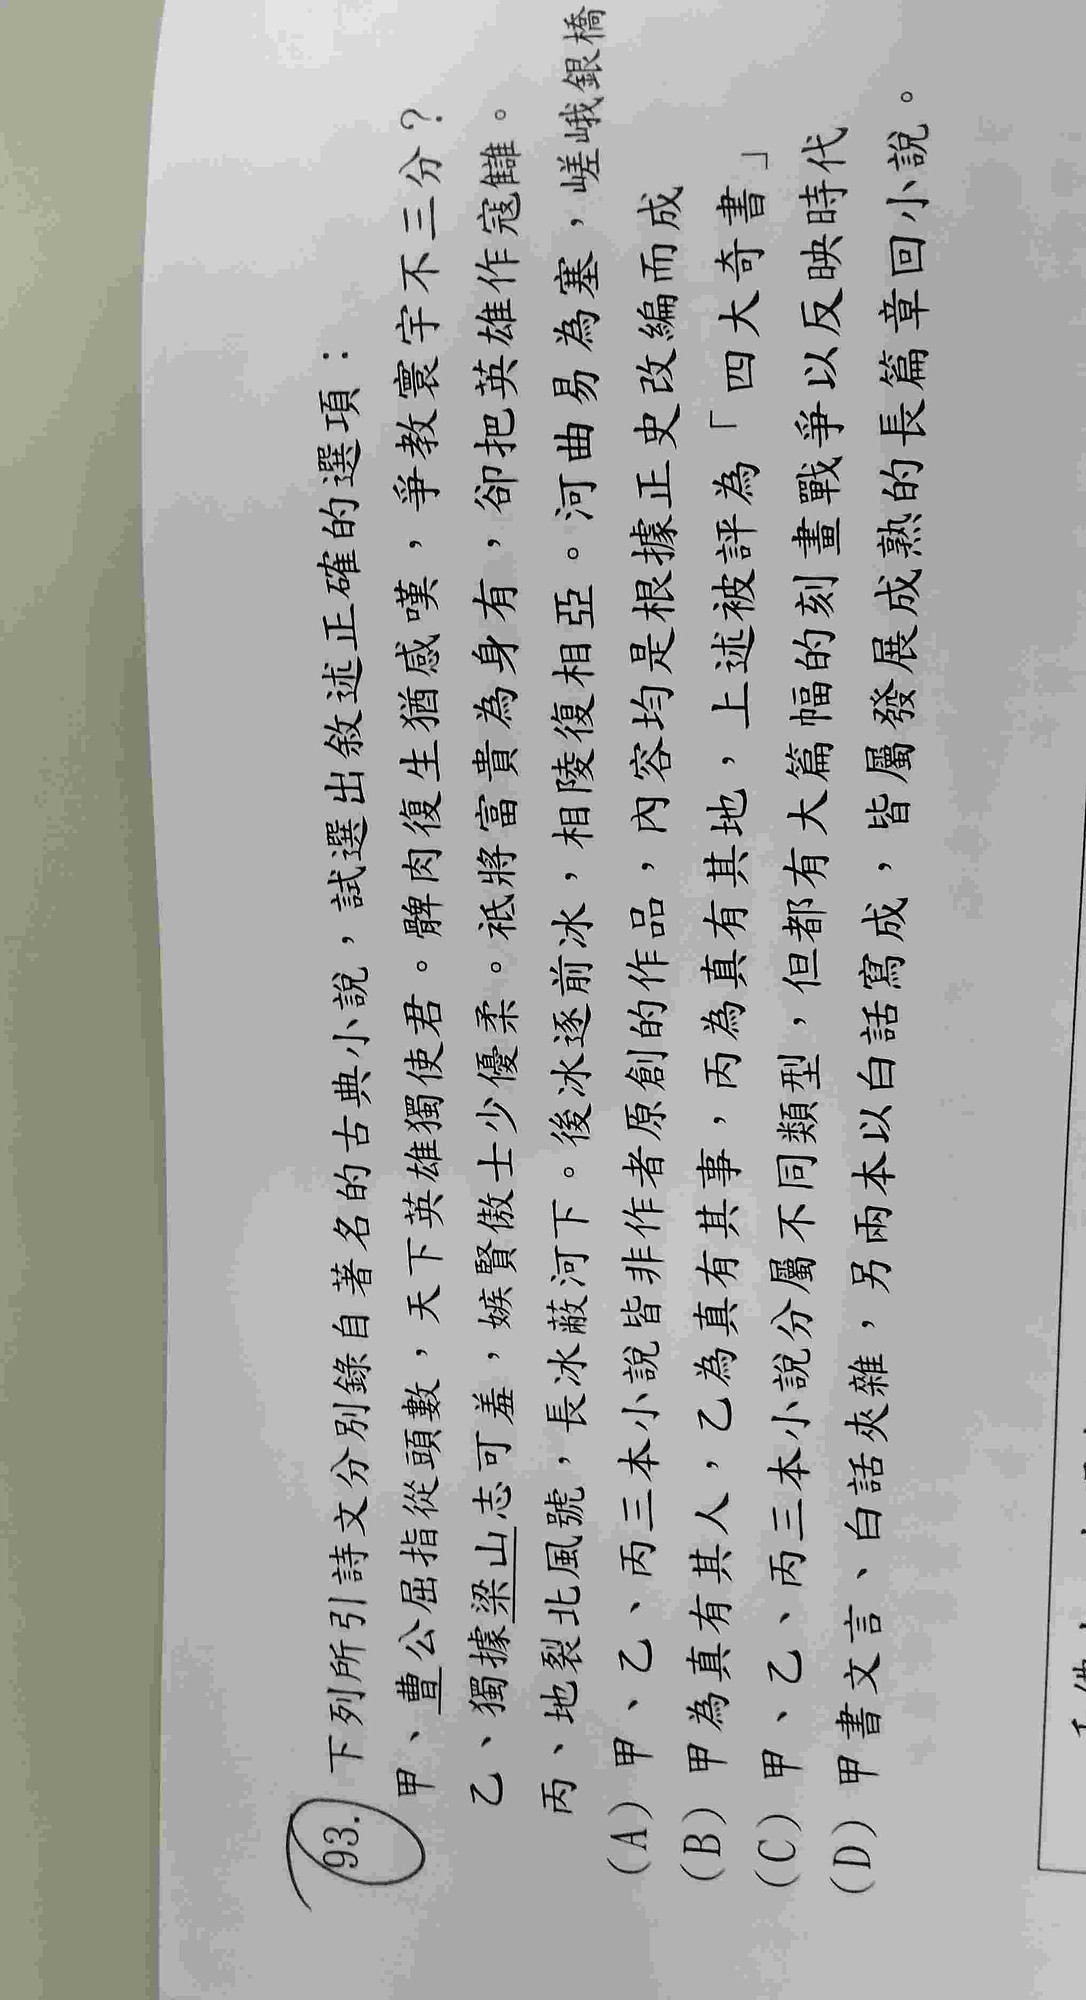 93. 下列所引詩文分別錄自著名的古典小說，試選出敘述正確的選項：
甲、曹公屈指從頭數，天下英雄獨使君。髀肉復生猶感嘆，爭教寰宇不三分？
乙、獨據梁山志可羞，嫉賢傲士少優柔。祗將富貴為身有，卻把英雄作寇讎。
丙、地裂北風號，長冰蔽河下。後冰逐前冰，相陵復相亞。河曲易為塞，嵯峨銀橋
(A) 甲、乙、丙三本小說皆非作者原創的作品，內容均是根據正史改編而成
(B) 甲為真有其人，乙為真有其事，丙為真有其地，上述被評為「四大奇書」
(C) 甲、乙、丙三本小說分屬不同類型，但都有大篇幅的刻畫戰爭以反映時代
(D) 甲書文言、白話夾雜，另兩本以白話寫成，皆屬發展成熟的長篇章回小說。